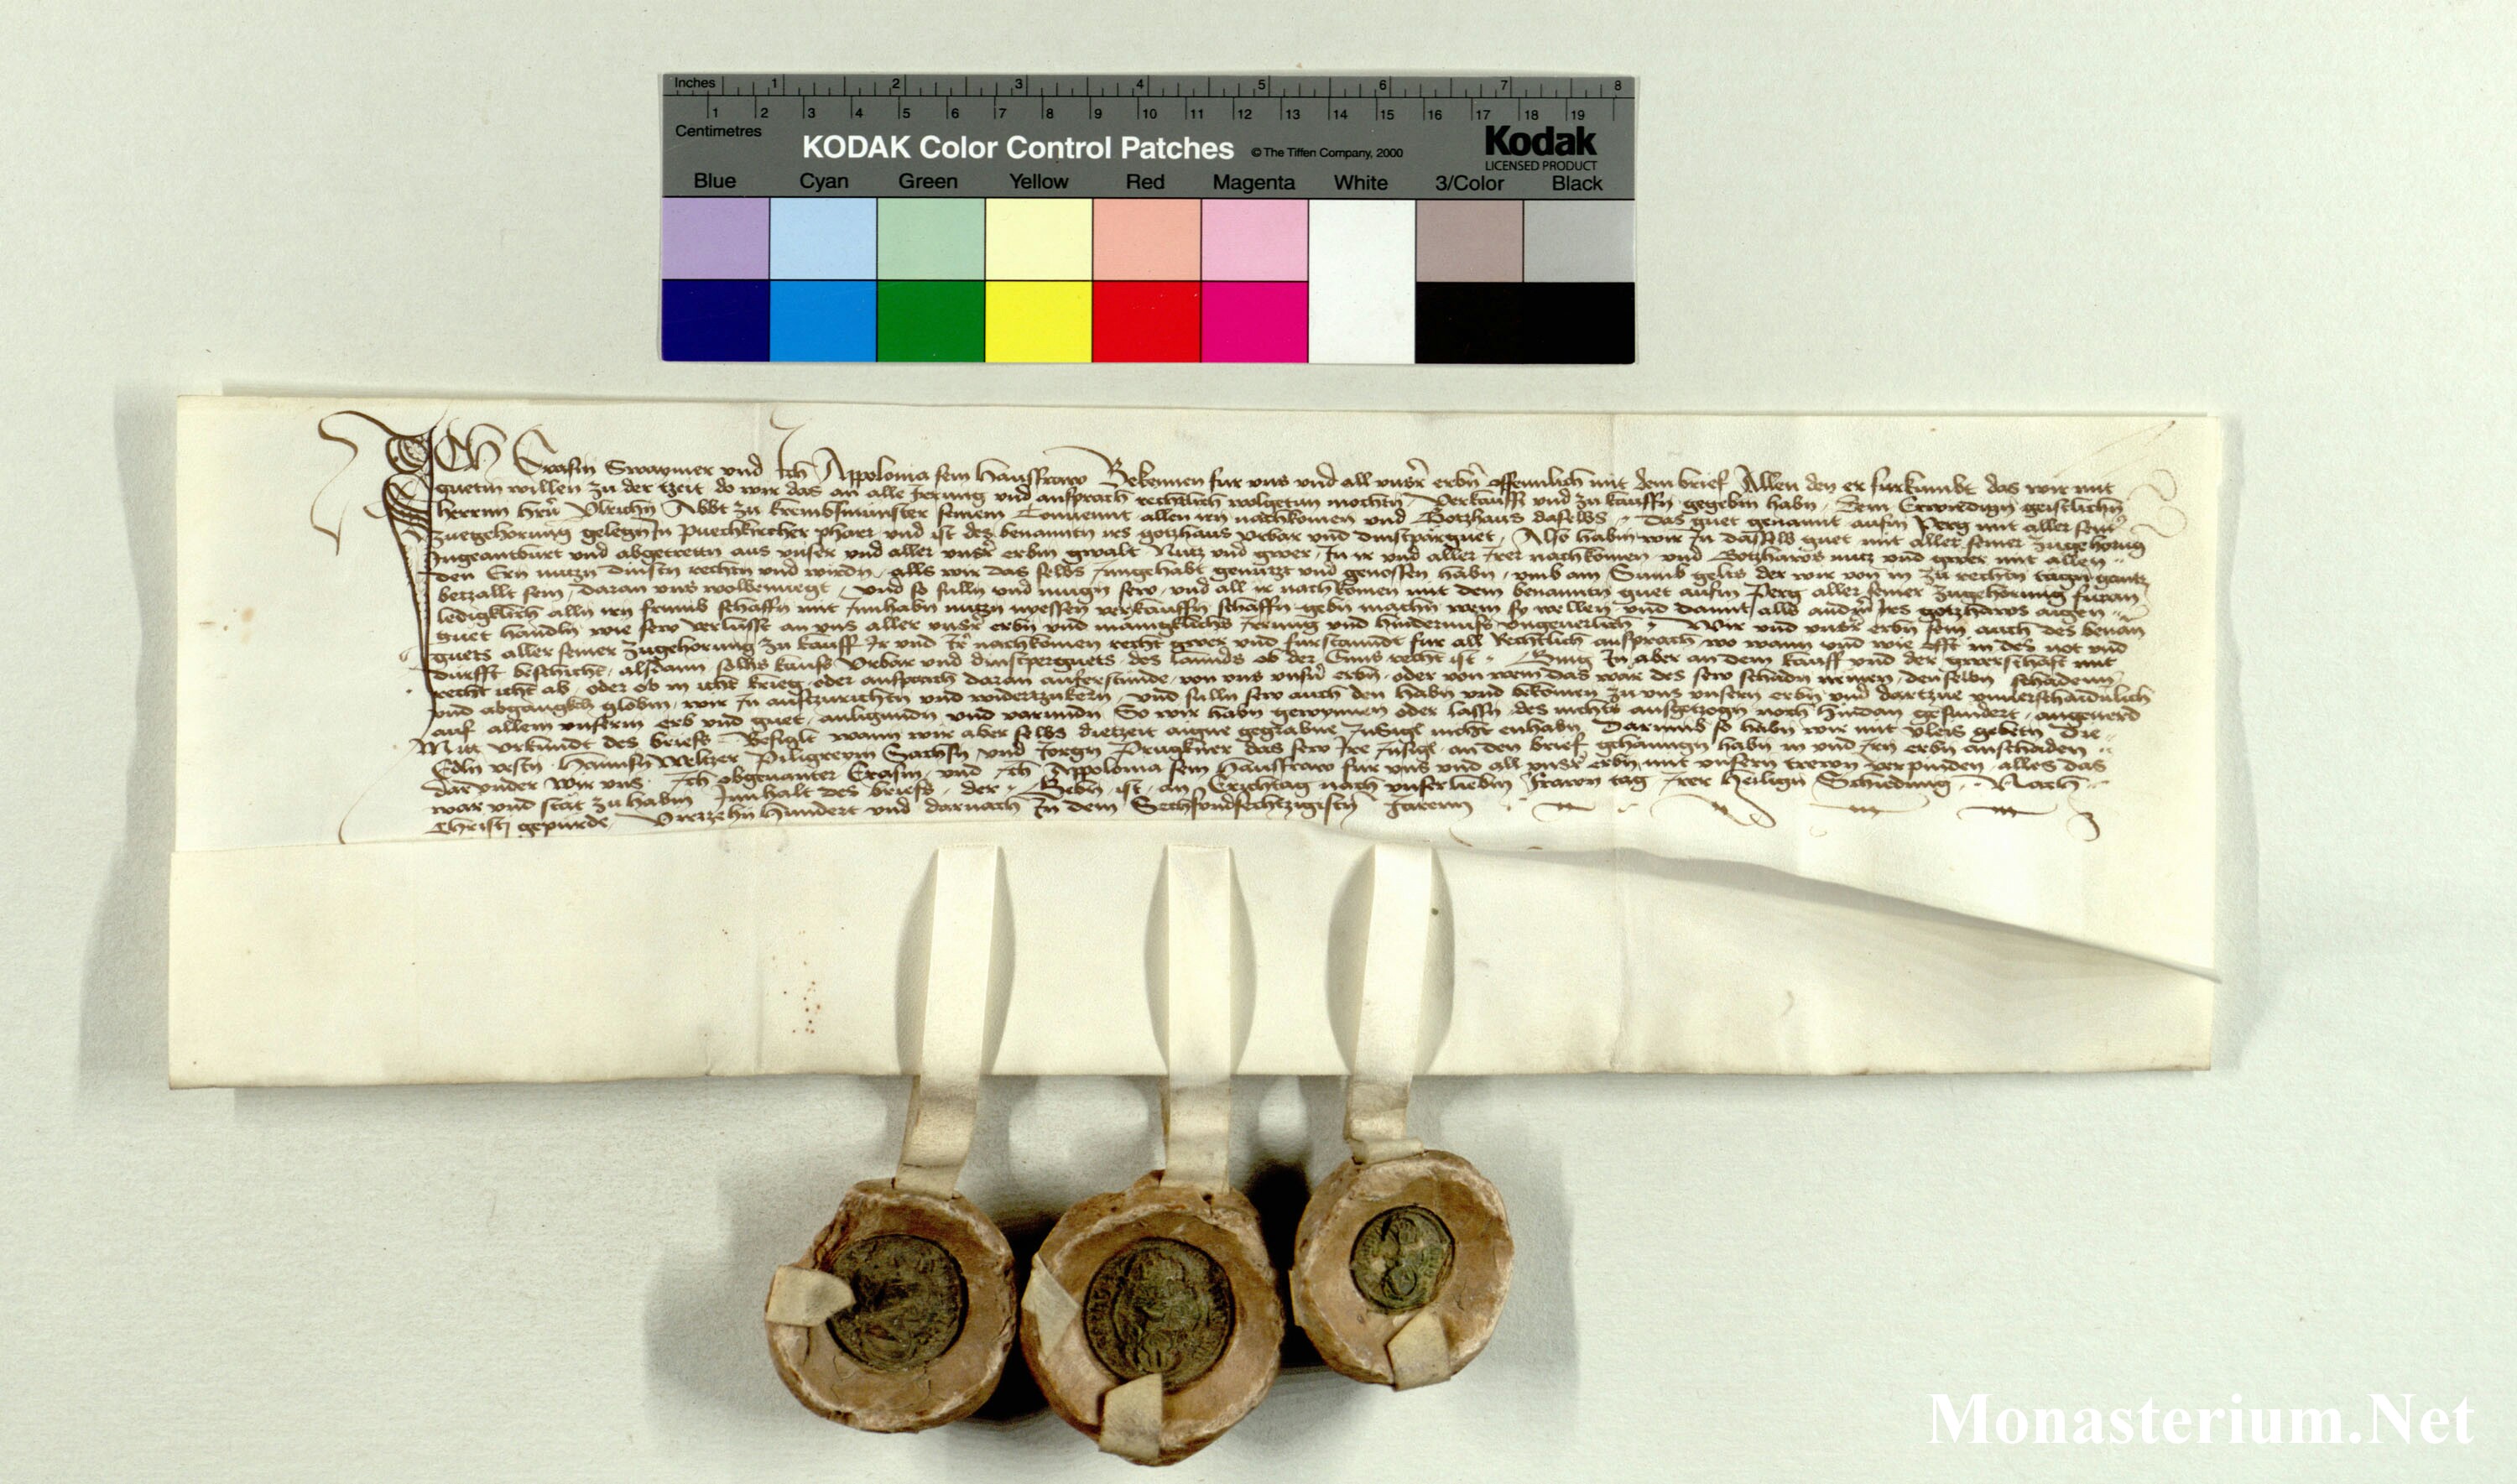 Inches 1 2 3 4 5 6 7 8
1 2 3 4 5 6 7 8 9 10 11 12 13 14 15 16 17 18 19
Centimetres
KODAK Color Control Patches © The Tiffen Company, 2000 Kodak
LICENSED PRODUCT
Blue Cyan Green Yellow Red Magenta White 3/Color Black
ICH Erasm Swaymer und Ich Appolonia sein hausfraw Bekennen fur uns und all unsr erbn offennlich mit dem brief Allen den er furkumbt das wir mit
guetm willen zu der tzeit do wir das an alle Irrung und ansprach rechtlich wolgetun mochtn Verkaufft und zu kauffn gegebm habn Dem Erwirdign geistlichn
herrnn hrn Ulrichn Abbt zu Krembsmunster seinem Convennt allen irn nachkomen und Gotzhaus daselbs Das guet genannt aufm Perg mit aller seiner
zuegehorung gelegn In Puechkircher pharr und ist des benanntn irs gotzhaus Urbar und dinstperguet Also habm wir In dasselb guet mit aller seiner zugehorung
Ingeantburt und abgetrettn aus unser und aller unsr erbm gwalt Nutz und gwer In ir und aller irer nachkomen und Gotzhaws nutz und gwer mit allen
den Ern nutzn dinstn rechtn und wirdn alls wir das selbs Inngehabt genutzt und genossen habn umb ain Sumb gelts der wir von in zu rechtn tagn gantz
betzallt sein daran uns wolbenuegt und so sulln und mugn sew und all ir nachkomen mit dem benanntn guet aufm Perg aller seiner zugehorung furan
ledigklich alln irn frumb schaffn mit Innhabn nutzn niessen verkauffn schaffn gebn machn wem sy wellen und damit alls andrm irs gotzhaws aigen
guet handln wie sew verlusst an uns aller unsr erbn und manigklichs Irrung und hindernuss ungeverlich Wir und unsr erbn sein auch des benan
guets aller seiner zugehorung zu kauff Ir und Ir nachkomen recht gwer und furstanndt fur all Rechtlich ansprach wo wann und wie offt in des not und
durfft beschicht alsdann solhs kaufs Urbar und dinstperguets des lannds ob der Enns recht ist Gieng In aber an dem kauff und der gwerschaft mit
recht icht ab oder ob in icht krieg oder ansprach daran auferstunde von uns unsrn erbn oder von wem das war des sew schadn nemen denselbn schadenn
und abgangkch globm wir In ausrichtn und widertzukern Und sulln sew auch den habn und bekomen zu uns unsern erbn und dartzue unuerschaidnlich
auf allem unserm erb und guet anligundn und varundn So wir habn gewynnen oder lassn des nichts ausgetzogn noch hindan gesundert angeverd
Mit Urkundt des briefs Besiglt wann wir aber selbs dietzeit aigne gegrabne Insigl nicht enhabn Darumb so habn wir mit vleis gebetn Die
Edln vestn Hannsn Weltzer Piligreym Sachsn und Jorgn Prugkner das sew Ire Insigl an den brief gehanngn habn in und irn erbn anschaden
darunder wir uns Ich obgenanter Erasm und Ich Appolonia sein hausfraw fur uns und all unsr erbn mit unsern trewn verpinden alles das
war und stat zu habm Innhalt des briefs der Gebn ist an Erichtag nach unser liebm frawn tag irer heilign Schiedung Nach
Christi gepurde Virtzehn hundert und darnach In dem Sechsundsechtzigistn Jarenn
Monasterium.Net